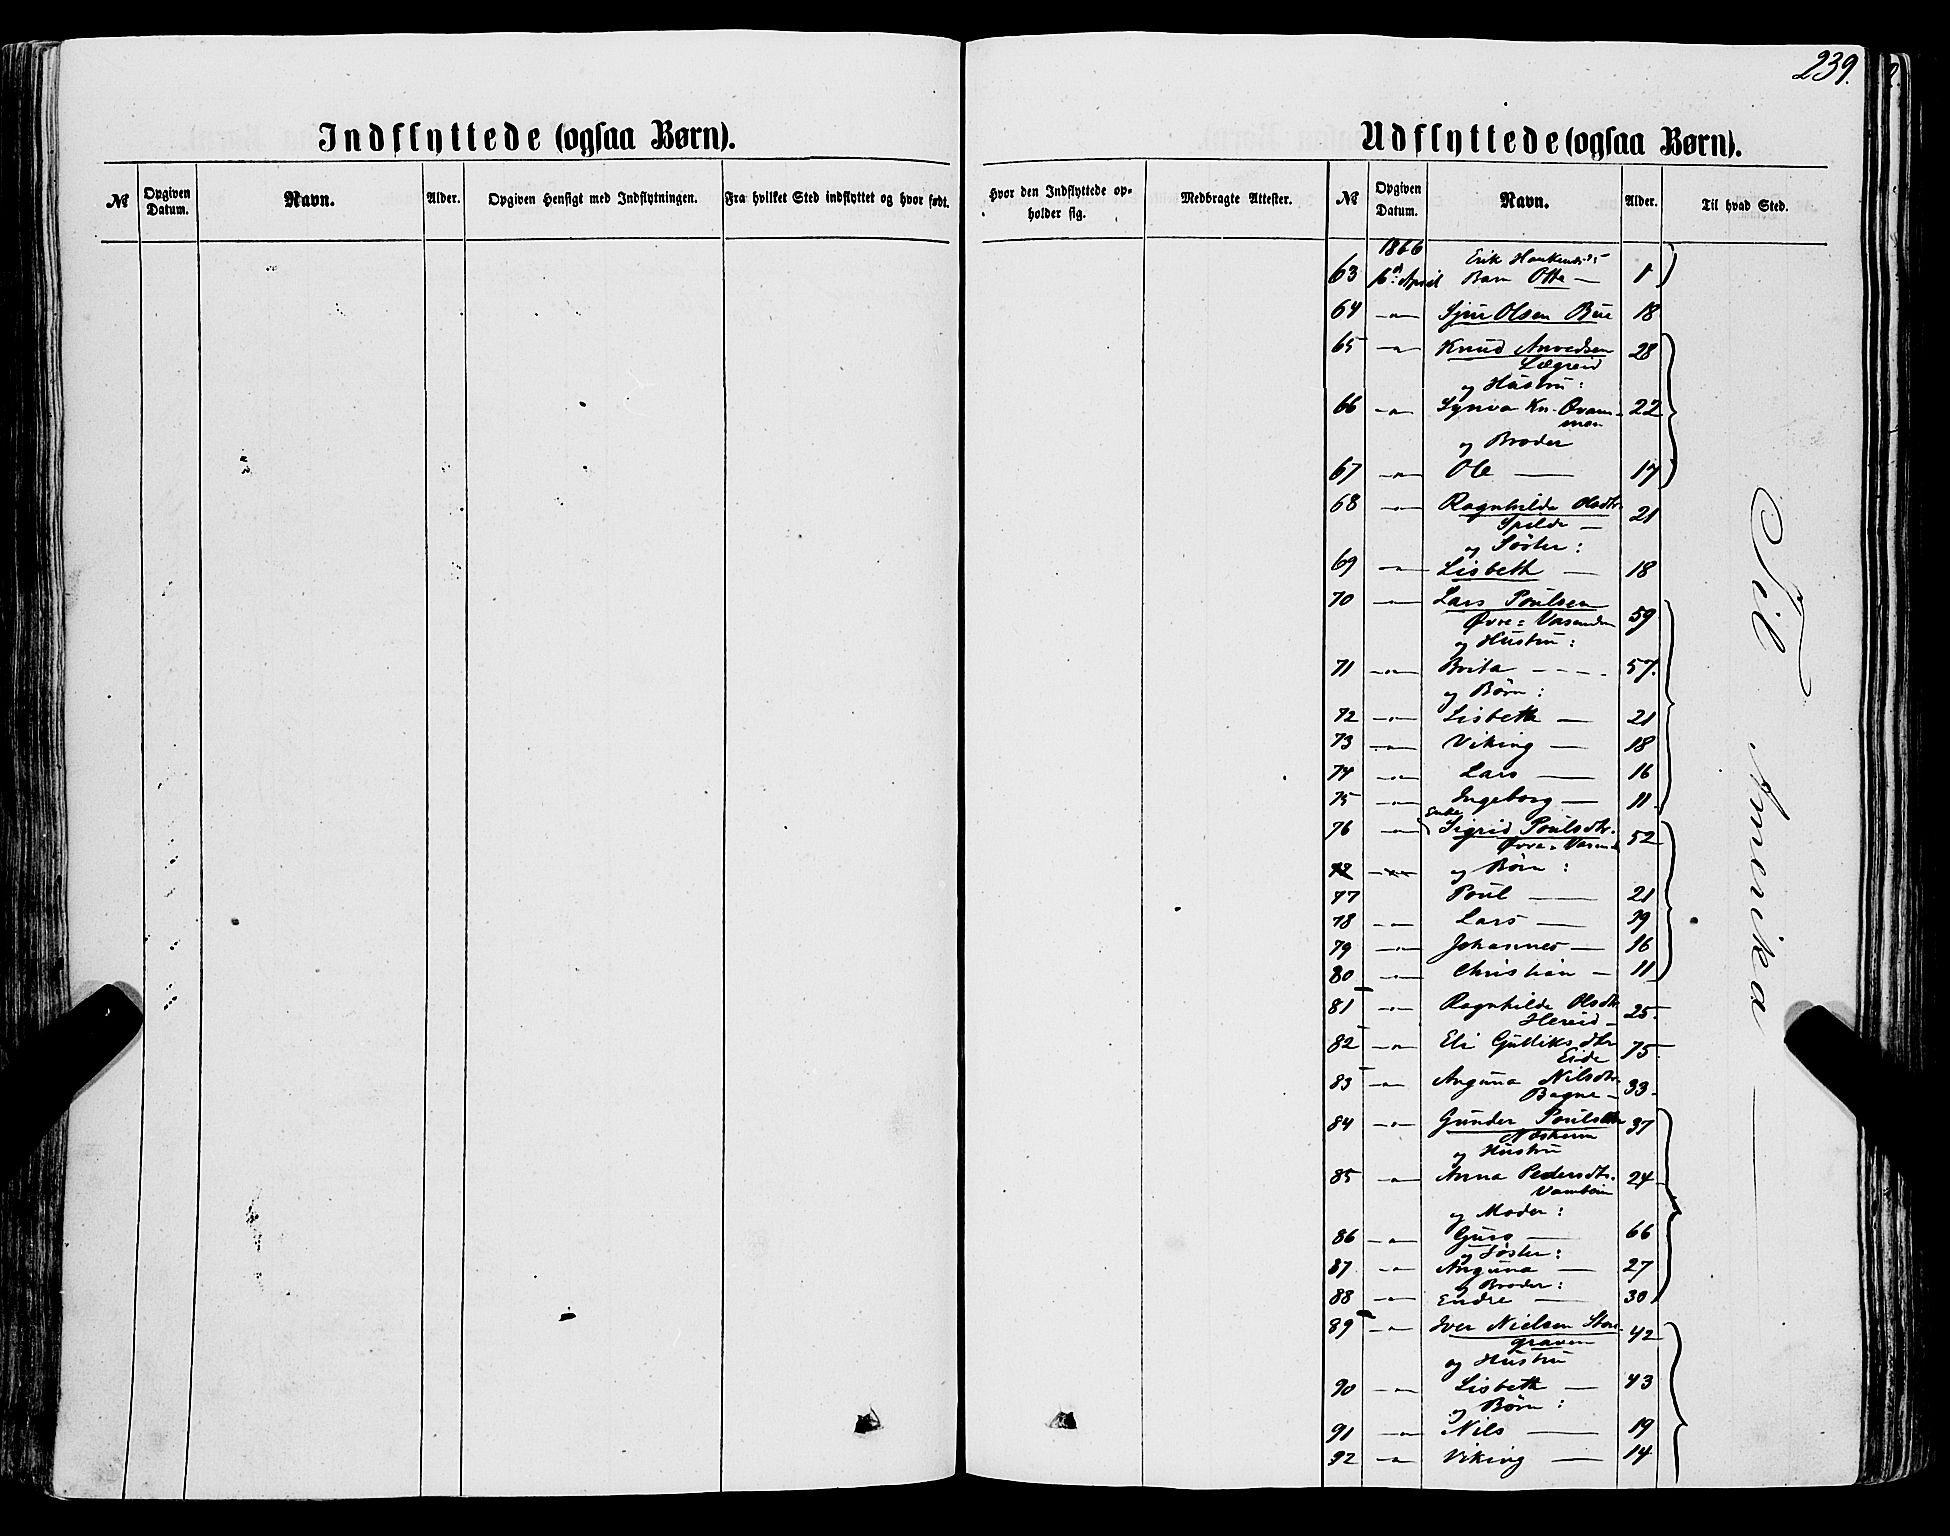 239.
Indflyttede (ogsaa Børn).
№
Opgiven Datum.
Navn.
Alder.
Opgiven Hensigt med Indflytningen.
Fra hvilket Sted indflyttet og hvor født.
Hvor den Indflyttede opholder sig.
Medbragte Attester.
Udflyttede (ogsaa Børn).
№
Opgiven Datum.
Navn.
Alder.
Til hvad Sted.
1866
Erik
63 16d April Barn Otte — 1
64 —"— Sjur Olsen Bue 18
65 —"— Knud Arvedsen 28
Lægreid
og Hustru:
66 —"— Synva Kn. Qvam- 22
men
og Broder
67 —"— Ole — 17
68 —"— Ragnhilde Olsdtr. 21
Spilde —
og Søster:
69 —"— Lisbeth — 18
70 —"— Lars Poulsen 59
Øvre-Vasenden
og Hustru:
71 —"— Brita - - - 57.
og Børn:
72 —"— Lisbeth — 21
73 —"— Viking — 18
74 —"— Lars — 16
75 —"— Ingeborg — 11
Enke
76 —"— Sigrid Poulsdtr. 52
Øvre-Vasend
og Børn:
77 Poul — 21
78 —"— Lars — 19
79 —"— Johannes — 16
80 —"— Christian — 11
81 —"— Ragnhilde Olsdtr 25
Hereid —
82 —"— Eli Gulliksdtr 75
Eide
83 —"— Anguna Nilsdtr. 33
Bagne —
84 —"— Gunder Poulsen 37
Næsheim
og Hustru
85 —"— Anna Pedersdtr. 24
og Moder:
86 —"— Guro — 66
og Søster:
87 —"— Anguna — 27
og Broder:
88 —"— Endre — 30
89 —"— Iver Nielsen Store- 42
graven
og Hustru
90 —"— Lisbeth — 43
og Børn:
91 —"— Nils — 19
92 —"— Viking — 14
Til Amerika —